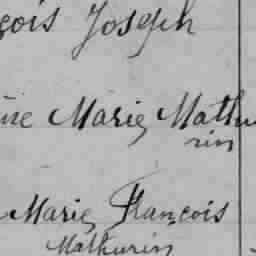 çois Joseph
ine Marie Mathu
rin
Marie François
Mathurin